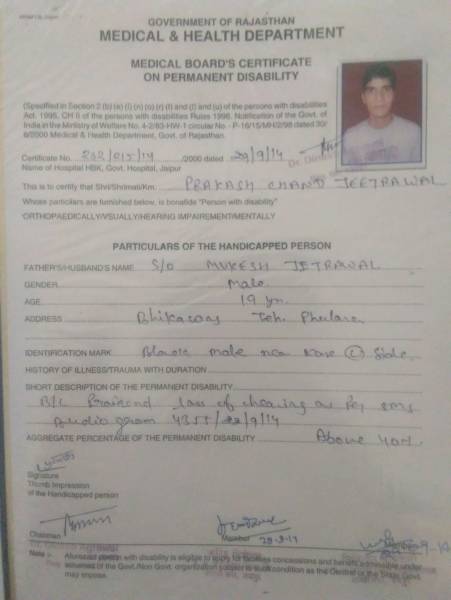 GOVERNMENT OF RAJASTHAN
MEDICAL & HEALTH DEPARTMENT
MEDICAL BOARD'S CERTIFICATE
ON PERMANENT DISABILITY
(Specified in Section 2 (b) (e) (l) (n) (o) (r) (t) and (l) and (u) of the persons with disabilities
Act. 1995, CH 6 of the persons with disabilities Rules 1996. Notification of the Govt. of
India in the Ministry of Welfare No. 4-2/83-HW-1 circular No - P-16/15/MH/2/98 dated 30/
8/2000 Medical & Health Department, Govt. of Rajasthan.
Certificate No. 202/015/14 /2000 dated 29/9/14
Name of Hospital HBK, Govt. Hospital, Jaipur
This is to certify that Shri/Shrimati/Km. PRAKASH CHAND JEETRAWAL
Whose particulars are furnished below, is bonafide "Person with disability"
ORTHOPAEDICALLY/VISUALLY/HEARING IMPAIREMENT/MENTALLY
PARTICULARS OF THE HANDICAPPED PERSON
FATHER'S/HUSBAND'S NAME S/O MUKESH JETRAWAL
GENDER Male
AGE 19 yr.
ADDRESS Teh. Phulera
IDENTIFICATION MARK mole Nose (L) Side
HISTORY OF ILLNESS/TRAUMA WITH DURATION
SHORT DESCRIPTION OF THE PERMANENT DISABILITY
B/L loss of hearing as per SMS
Audiogram 4355/22/9/14
AGGREGATE PERCENTAGE OF THE PERMANENT DISABILITY Above 40%
Signature
Thumb Impression
of the Handicapped person
Chairman
Member
Note - Aforesaid person with disability is eligible to apply for facilities concessions and benefits admissible under
schemes of the Govt./Non Govt. organization subject to such condition as the Central or the State Govt.
may impose.